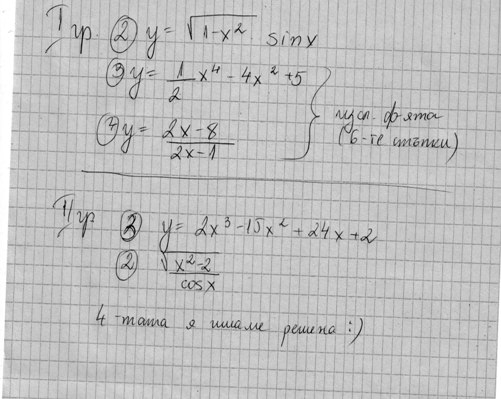 I гр. ② y = √1-x² sinx
③ y = 1/2 x⁴ - 4x² + 5
④ y = 2x-8 / 2x-1
изсл. ф-ята
(6-те стъпки)
II гр ③ y = 2x³ - 15x² + 24x + 2
② √x²-2 / cosx
4-тата я имаме решена :)